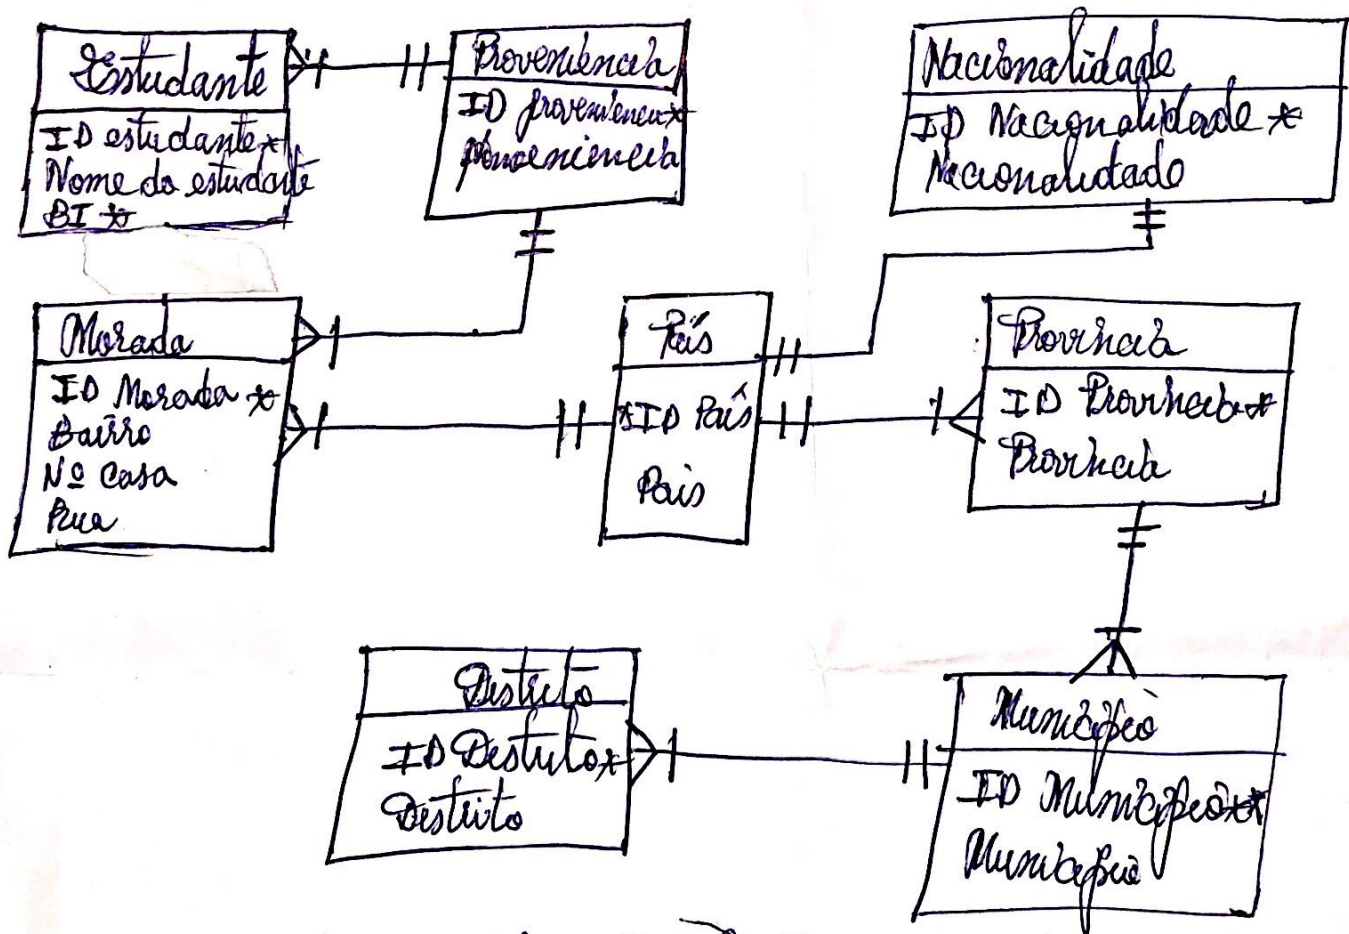 Estudante
ID estudante *
Nome do estudante
BI *
Proveniência
ID proveniencia *
Proveniencia
Nacionalidade
ID Nacionalidade *
Nacionalidade
Morada
ID Morada *
Bairro
Nº Casa
Rua
País
*ID País
País
Provincia
ID Provincia *
Provincia
Distrito
ID Distrito *
Distrito
Municipio
ID Municipio *
Municipio